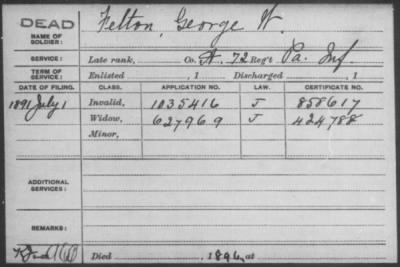 DEAD
NAME OF SOLDIER: Felton, George W.
SERVICE: Late rank, Co. H. 72 Reg't Pa. Inf
TERM OF SERVICE: Enlisted , 1 Discharged , 1
DATE OF FILING. CLASS. APPLICATION NO. LAW. CERTIFICATE NO.
1891 July 1 Invalid, 1035416 J 858617
Widow, 627969 J 424788
Minor,
ADDITIONAL SERVICES:
REMARKS:
Died , 1896, at